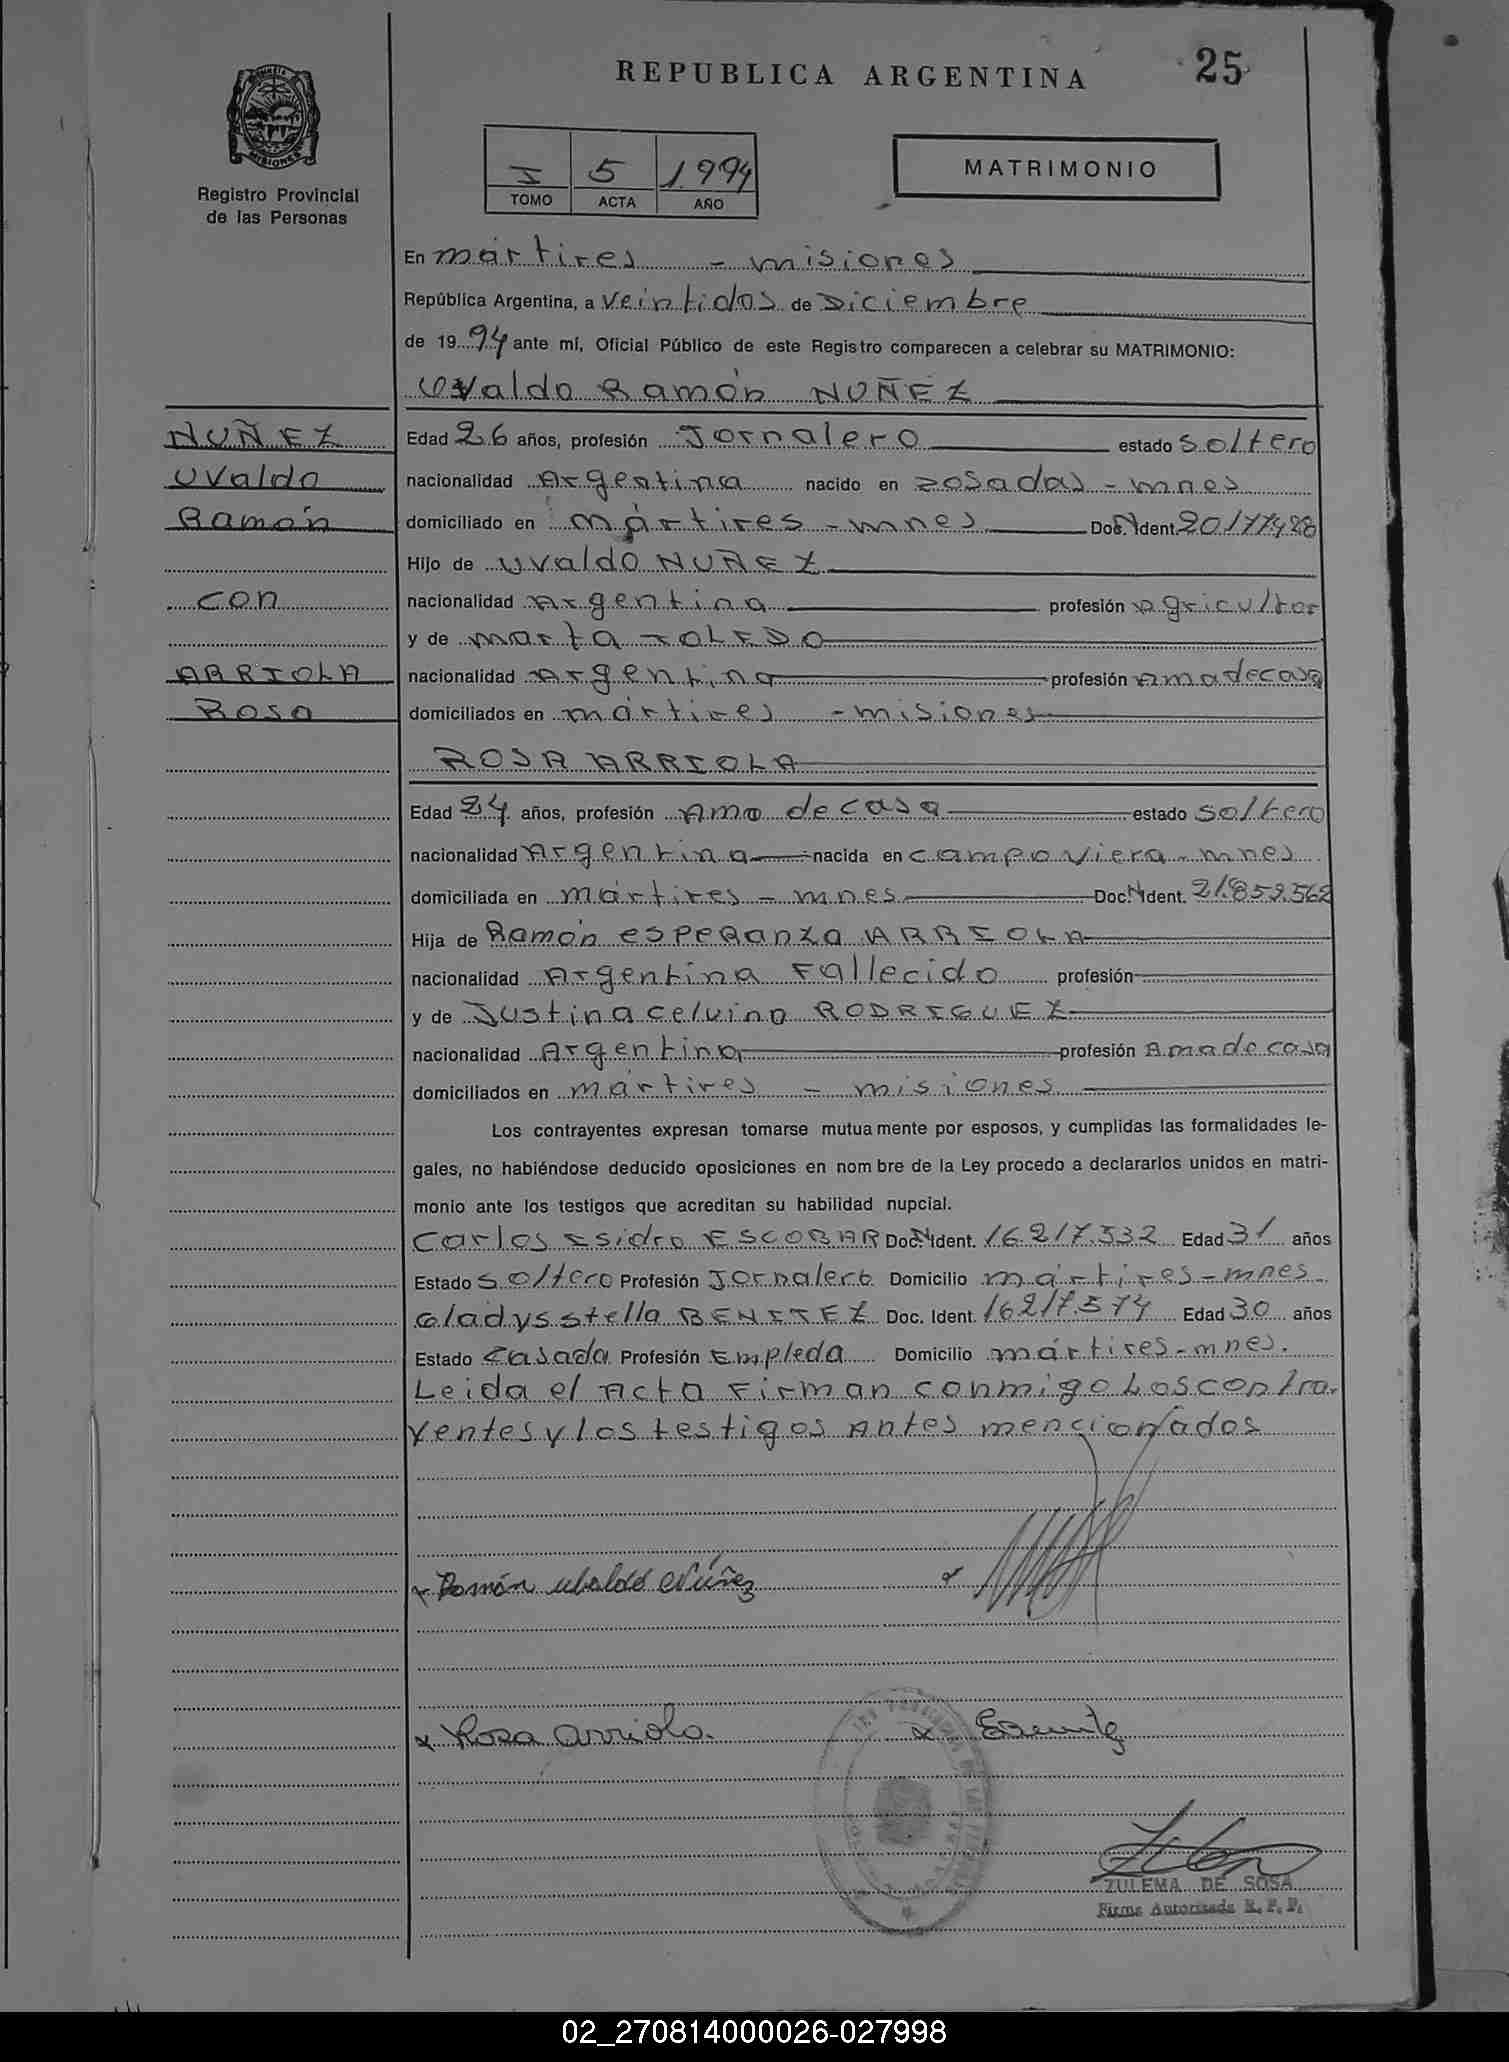 REPUBLICA ARGENTINA
25
MISIONES
Registro Provincial
de las Personas
I 5 1.994
TOMO ACTA AÑO
MATRIMONIO
En mártires - misiones
República Argentina, a veintidos de Diciembre
de 1994 ante mí, Oficial Público de este Registro comparecen a celebrar su MATRIMONIO:
Uvaldo Ramón NUÑEZ
NUÑEZ
Uvaldo
Ramón
con
ARRIOLA
Rosa
Edad 26 años, profesión Jornalero estado soltero
nacionalidad Argentina nacido en Posadas - mnes
domiciliado en mártires - mnes Doc. N Ident.
Hijo de Uvaldo NUÑEZ
nacionalidad Argentina profesión Agricultor
y de marta TOLEDO
nacionalidad Argentina profesión Ama de casa
domiciliados en mártires - misiones
ROSA ARRIOLA
Edad 24 años, profesión Ama de casa estado soltero
nacionalidad Argentina nacida en campo viera - mnes
domiciliada en mártires - mnes Doc. N Ident. 21.852.562
Hija de Ramón esperanza ARRIOLA
nacionalidad Argentina Fallecido profesión
y de Justina celvina RODRIGUEZ
nacionalidad Argentina profesión Ama de casa
domiciliados en mártires - misiones
Los contrayentes expresan tomarse mutuamente por esposos, y cumplidas las formalidades le-
gales, no habiéndose deducido oposiciones en nombre de la Ley procedo a declararlos unidos en matri-
monio ante los testigos que acreditan su habilidad nupcial.
Carlos Isidro ESCOBAR Doc. N Ident. 16.217.532 Edad 31 años
Estado soltero Profesión Jornalero Domicilio mártires - mnes.
Gladys stella BENITEZ Doc. Ident. 16217.574 Edad 30 años
Estado casada Profesión Empleda Domicilio mártires - mnes.
Leida el Acta Firman conmigo Los contra.
yentes y los testigos Antes mencionados
x Ramón Ubaldo Núñez x
x Rosa Arriola. x
ZULEMA DE SOSA
Firma Autorizada R. P. P.
02_270814000026-027998